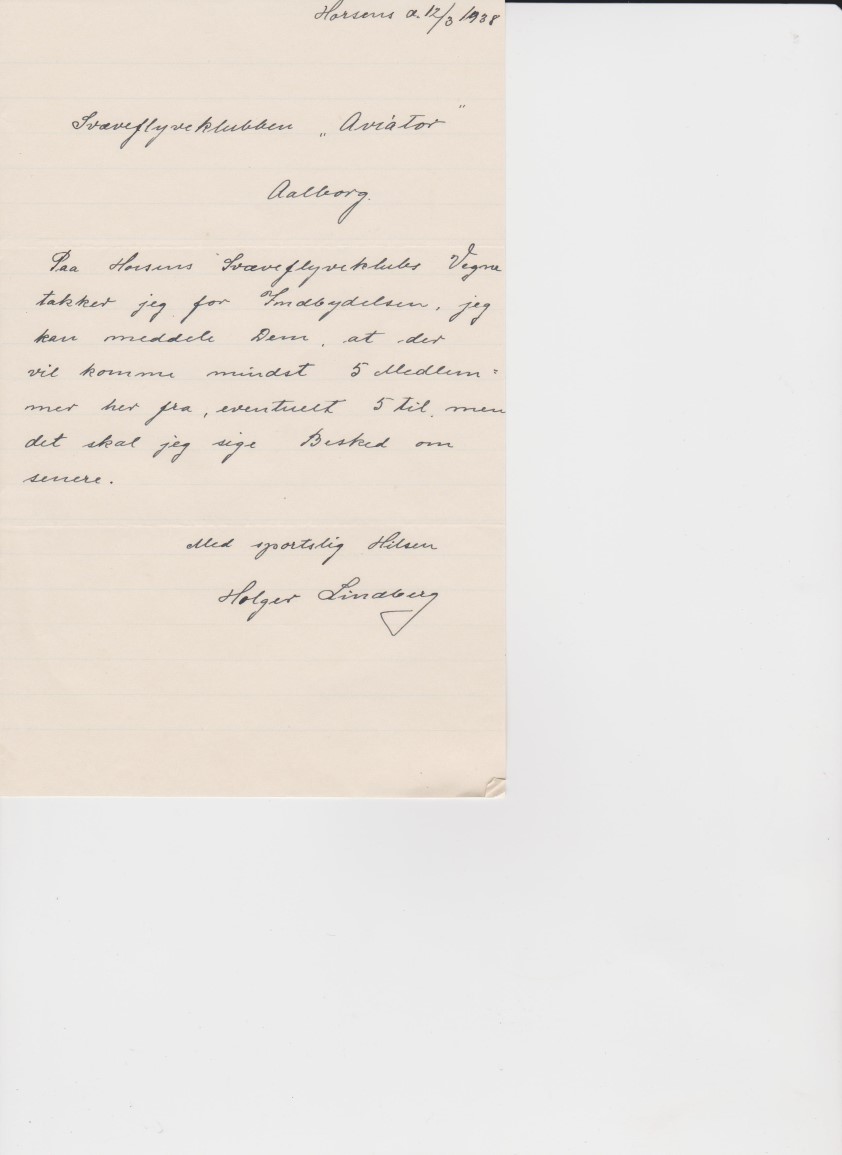 Horsens d. 12/3 1938
Svæveflyveklubben „Aviator"
Aalborg.
Paa Horsens Svæveflyveklubs Vegne
takker jeg for Indbydelsen, jeg
kan meddele Dem, at der
vil komme mindst 5 Medlem=
mer her fra, eventuelt 5 til, men
det skal jeg sige Besked om
senere.
Med sportslig Hilsen
Holger Lindberg